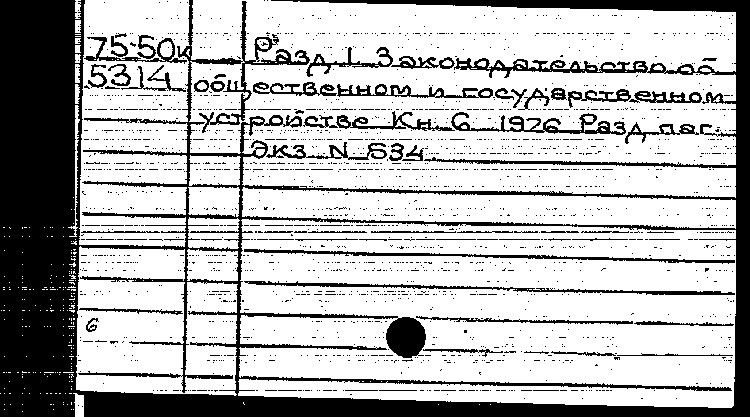 75-50к Разд 1 Законодательство об
5314 общественном и государственном
устройстве Кн. 6 1926 Разд паг.
Экз N 534
6